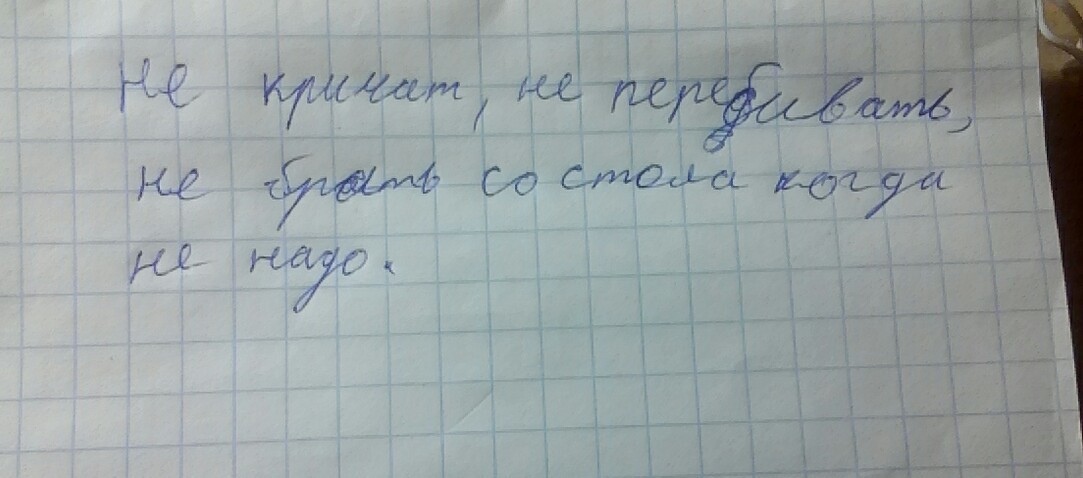 не кричат, не перебивать,
не брать со стола когда
не надо.